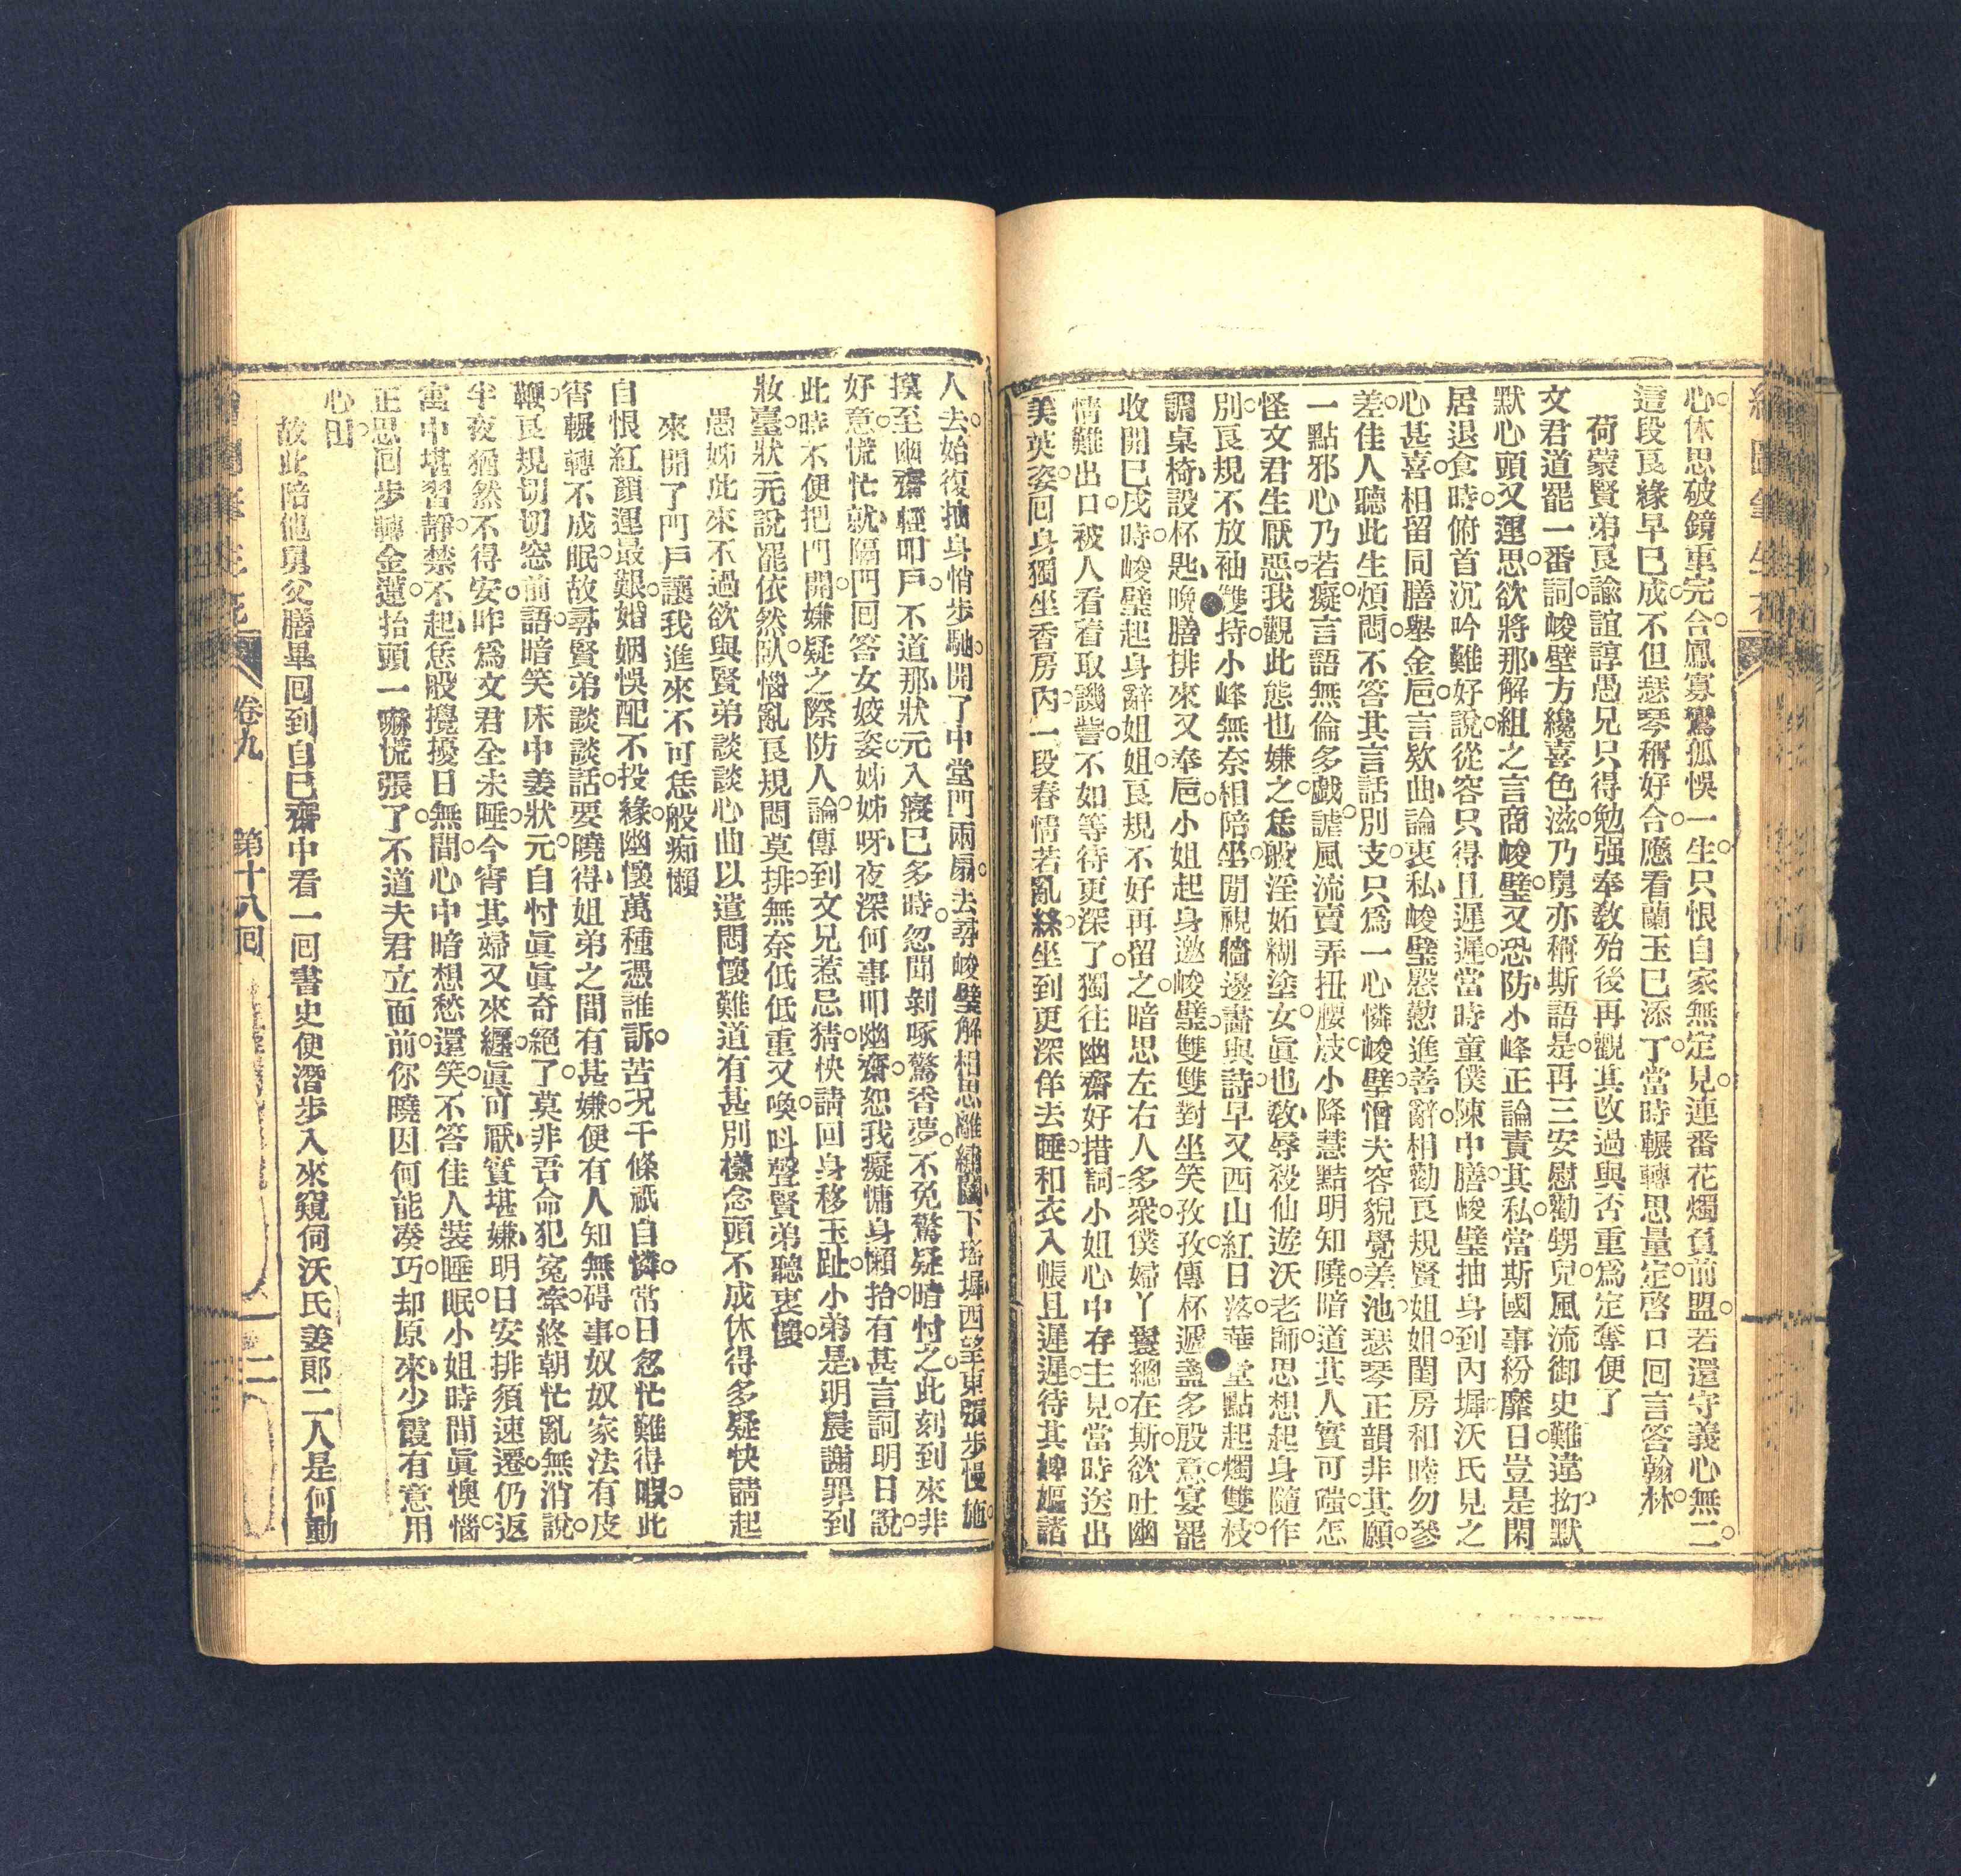 繪圖筆生花
心休思破鏡重完合鳳寡鸞孤悞一生只恨自家無定見連番花燭負前盟若還守義心無二
這段良緣早已成不但瑟琴稱好合應看蘭玉已添丁當時輾轉思量定啓口回言答翰林
荷蒙賢弟良諭誼諄愚兄只得勉强奉教殆後再觀其改過與否重爲定奪便了
文君道罷一番詞峻壁方纔喜色滋乃舅亦稱斯語是再三安慰勸甥兒風流御史難違拗默
默心頭又運思欲將那解組之言商峻壁又恐防小峰正論責其私當斯國事紛靡日豈是閑
居退食時俯首沉吟難好說從容只得且遲遲當時童僕陳中膳峻壁抽身到內墀沃氏見之
心甚喜相留同膳舉金巵言欵曲論衷私峻壁慇懃進善辭相勸良規賢姐姐閨房和睦勿參
差佳人聽此生煩悶不答其言話別支只爲一心憐峻壁憎夫容貌覺差池瑟琴正韻非其願
一點邪心乃若癡言語無倫多戲謔風流賣弄扭腰肢小降慧黠明知曉暗道其人實可嗤怎
怪文君生厭惡我觀此態也嫌之恁般淫妬糊塗女眞也敎辱殺仙遊沃老師思想起身隨作
別良規不放袖雙持小峰無奈相陪坐閒視牆邊畵與詩早又西山紅日落華堂點起燭雙枝
調桌椅設杯匙晚膳排來又奉巵小姐起身邀峻壁雙雙對坐笑孜孜傳杯遞盞多殷意宴罷
收開已戌時峻壁起身辭姐姐良規不好再留之暗思左右人多衆僕婦丫鬟總在斯欲吐幽
情難出口被人看着取譏訾不如等待更深了獨往幽齋好措詞小姐心中存主見當時送出
美英姿回身獨坐香房內一段春情若亂絲坐到更深佯去睡和衣入帳且遲遲待其婢嫗諸
人去始復抽身悄步馳開了中堂門兩扇去尋峻壁解相思離繡闥下瑤墀西望東張步慢施
摸至幽齋輕叩戶不道那狀元入寢已多時忽聞剝啄驚香夢不免驚疑暗忖之此刻到來非
好意慌忙就隔門回答女姣姿姊姊呀夜深何事叩幽齋恕我癡慵身懶抬有甚言詞明日說
此時不便把門開嫌疑之際防人論傳到文兄惹忌猜快請回身移玉趾小弟是明晨謝罪到
妝臺狀元說罷依然臥惱亂良規悶莫排無奈低低重又喚呌聲賢弟聽衷懷
愚姊此來不過欲與賢弟談談心曲以遣悶懷難道有甚別樣念頭不成休得多疑快請起
來開了門戶讓我進來不可恁般痴懶
自恨紅顏運最艱婚姻悞配不投緣幽懷萬種憑誰訴苦况千條祇自憐常日忽忙難得暇此
宵輾轉不成眠故尋賢弟談談話要曉得姐弟之間有甚嫌便有人知無碍事奴奴家法有皮
鞭良規切切窓前語暗笑床中姜狀元自忖眞眞奇絕了莫非吾命犯寃牽終朝忙亂無消說
半夜猶然不得安昨爲文君全未睡今宵其婦又來纒眞可厭實堪嫌明日安排須速遷仍返
寓中堪習靜禁不起恁般攪擾日無間心中暗想愁還笑不答佳人裝睡眠小姐時間眞懊惱
正思回步轉金蓮抬頭一嚇慌張了不道夫君立面前你曉因何能凑巧却原來少霞有意用
心田
故此陪他舅父膳畢回到自已齋中看一回書史便潛步入來窺伺沃氏姜郞二人是何動
繪圖筆生花 卷九 第十八回 二